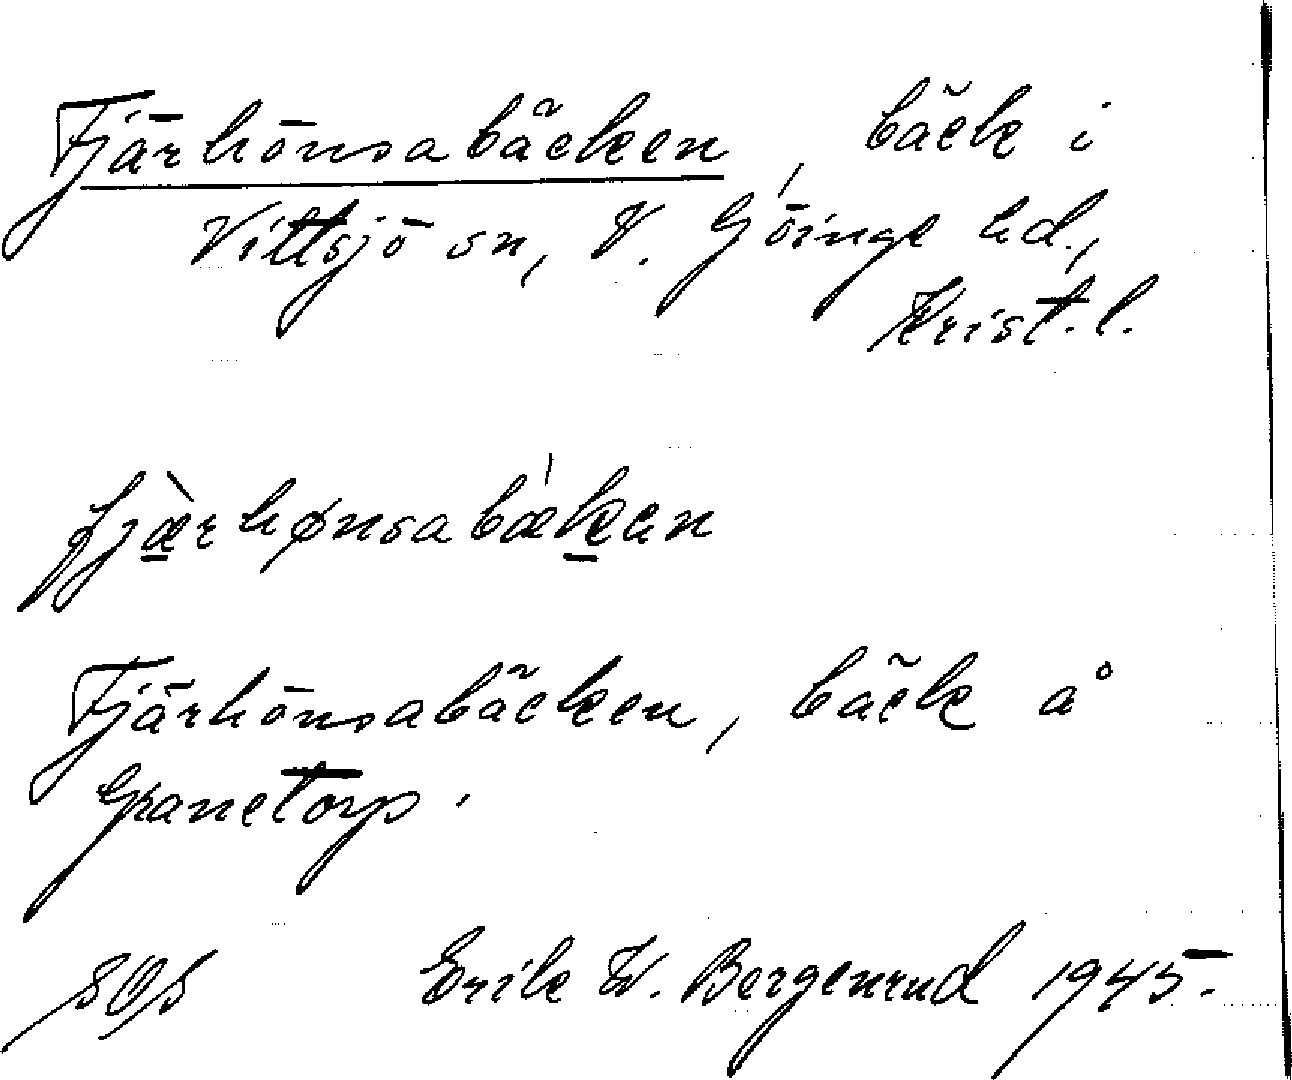 Fjärhönsabäcken, bäck i
Vittsjö sn, V. Göinge hd.,
Krist. l.
fjæ̀rhønsabæ̍kan
Fjärhönsabäcken, bäck å
Granetorp.
Erik W. Bergenrud 1945.